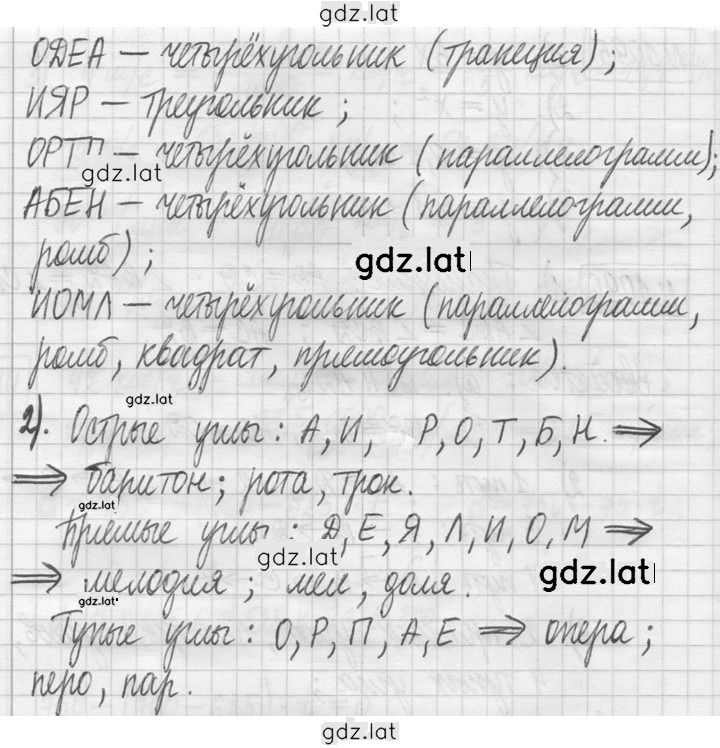 gdz.lat
ОДЕА — четырёхугольник (трапеция);
ИЯР — треугольник;
ОРТП — четырёхугольник (параллелограмм);
gdz.lat
АБЕН — четырёхугольник (параллелограмм,
ромб);
gdz.lat
ИОМЛ — четырёхугольник (параллелограмм,
ромб, квадрат, прямоугольник).
gdz.lat
2). Острые углы: А, И, Р, О, Т, Б, Н. ⇒
⇒ баритон; рота, трон.
gdz.lat
Прямые углы: Д, Е, Я, Л, И, О, М ⇒
gdz.lat
⇒ мелодия; мел, доля.
gdz.lat
gdz.lat
Тупые углы: О, Р, П, А, Е ⇒ опера;
перо, пар.
gdz.lat